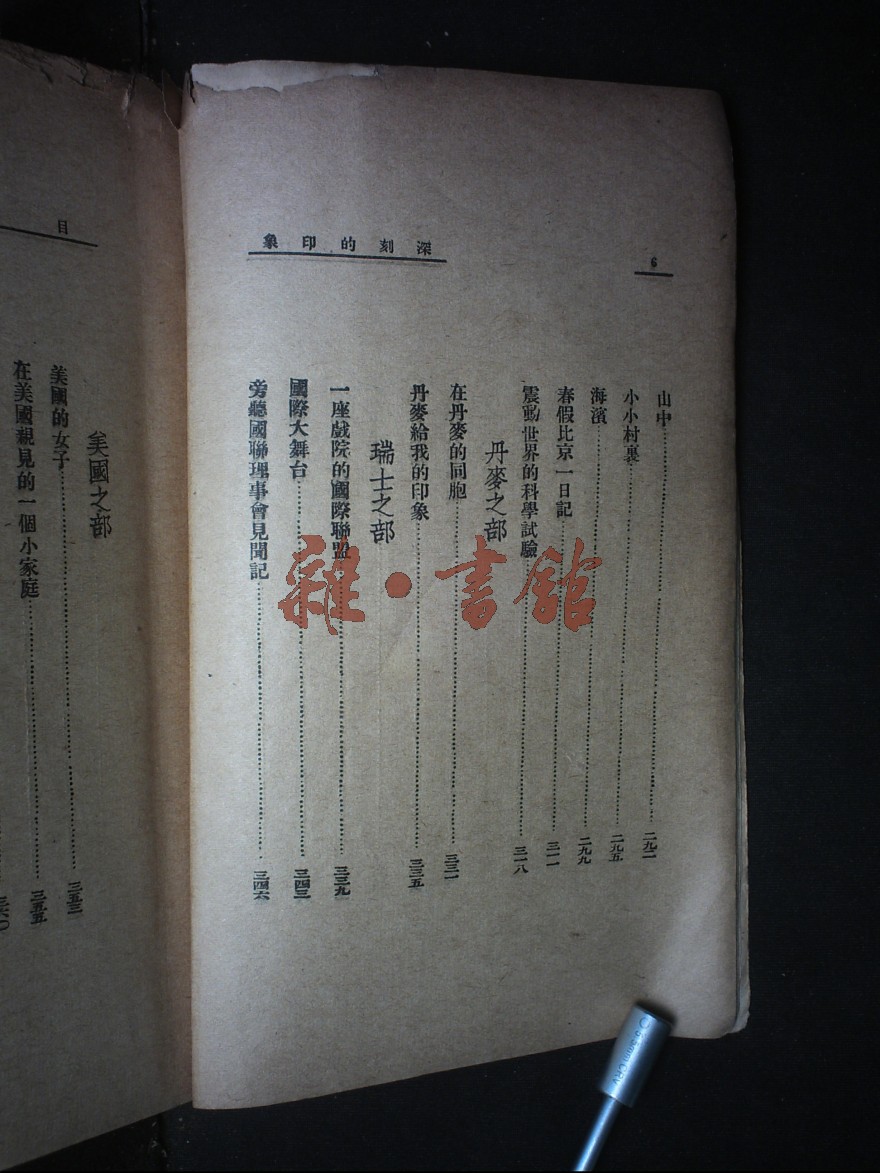 深刻的印象
6
山中……二九二
小小村裏……二九五
海濱……二九九
春假比京一日記……三一一
震動世界的科學試驗……三一八
丹麥之部
在丹麥的同胞……三三一
丹麥給我的印象……三三五
瑞士之部
一座戲院的國際聯盟……三三九
國際大舞台……三四三
旁聽國聯理事會見聞記……三四六
目
美國之部
美國的女子……三五三
在美國親見的一個小家庭……三五五
雜·書館